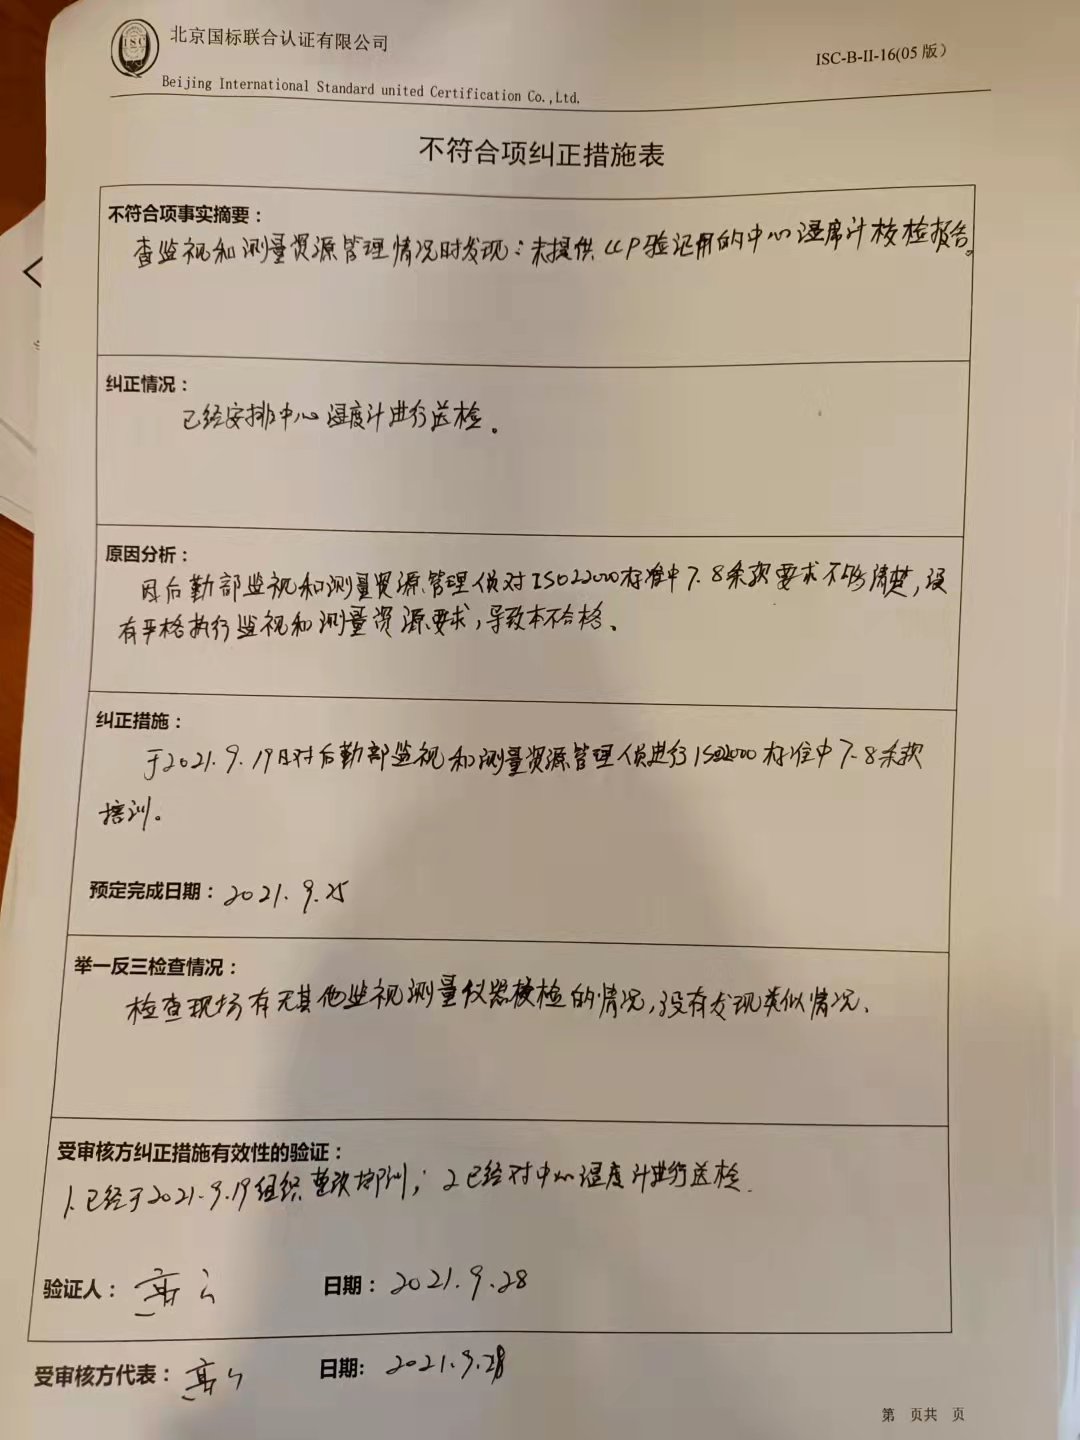 北京国标联合认证有限公司
ISC-B-II-16(05 版）
Beijing International Standard united Certification Co.,Ltd.
不符合项纠正措施表
不符合项事实摘要：
查监视和测量资源管理情况时发现：未提供CCP验证用的中心温度计校检报告。
纠正情况：
已经安排中心温度计进行送检。
原因分析：
因后勤部监视和测量资源管理人员对ISO22000标准中7.8条款要求不够清楚，没
有严格执行监视和测量资源要求，导致本不合格。
纠正措施：
于2021.9.19日对后勤部监视和测量资源管理人员进行ISO22000标准中7.8条款
培训。
预定完成日期：2021.9.25
举一反三检查情况：
检查现场有无其他监视测量仪器校检的情况，没有发现类似情况、
受审核方纠正措施有效性的验证：
1.已经于2021.9.19组织整改培训；2已经对中心温度计进行送检.
验证人： 日期：2021.9.28
受审核方代表： 日期：2021.9.28
第 页共 页